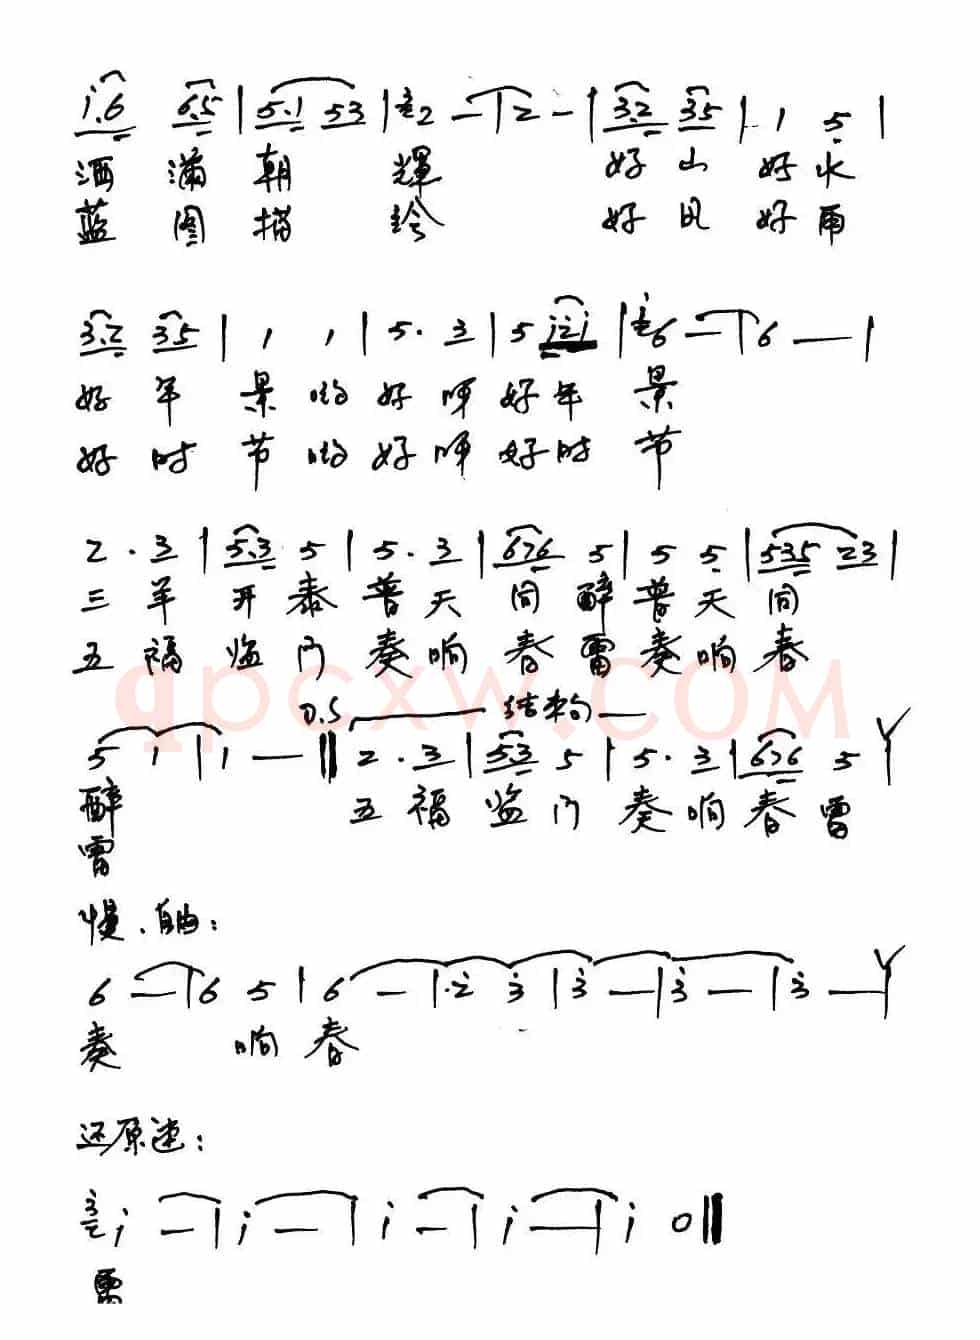 i.6 6.5 | 5.1 53 | 3/2 2 — | 2 — | 3.2 35 | 1 5 |
洒 满 朝 辉 好 山 好 水
蓝 图 描 绘 好 风 好 雨
3.2 35 | 1 1 | 5. 3 | 5 i2i | 6 — | 6 — |
好 年 景 哟 好 呀 好 年 景
好 时 节 哟 好 呀 好 时 节
2. 3 | 5.3 5 | 5. 3 | 676 5 | 5 5 | 535 23 |
三 羊 开 泰 普 天 同 醉 普 天 同
五 福 临 门 奏 响 春 雷 奏 响 春
qpcxw.COM
D.S 结构
5 1 | 1 — || 2. 3 | 5.3 5 | 5. 3 | 676 5
醉 五 福 临 门 奏 响 春 雷
雷
慢、自由:
6 — | 6 5 | 6 — | 2 3 | 3 — | 3 — | 3 —
奏 响 春
还原速:
i — | i — | i — | i — | i 0 ||
雷